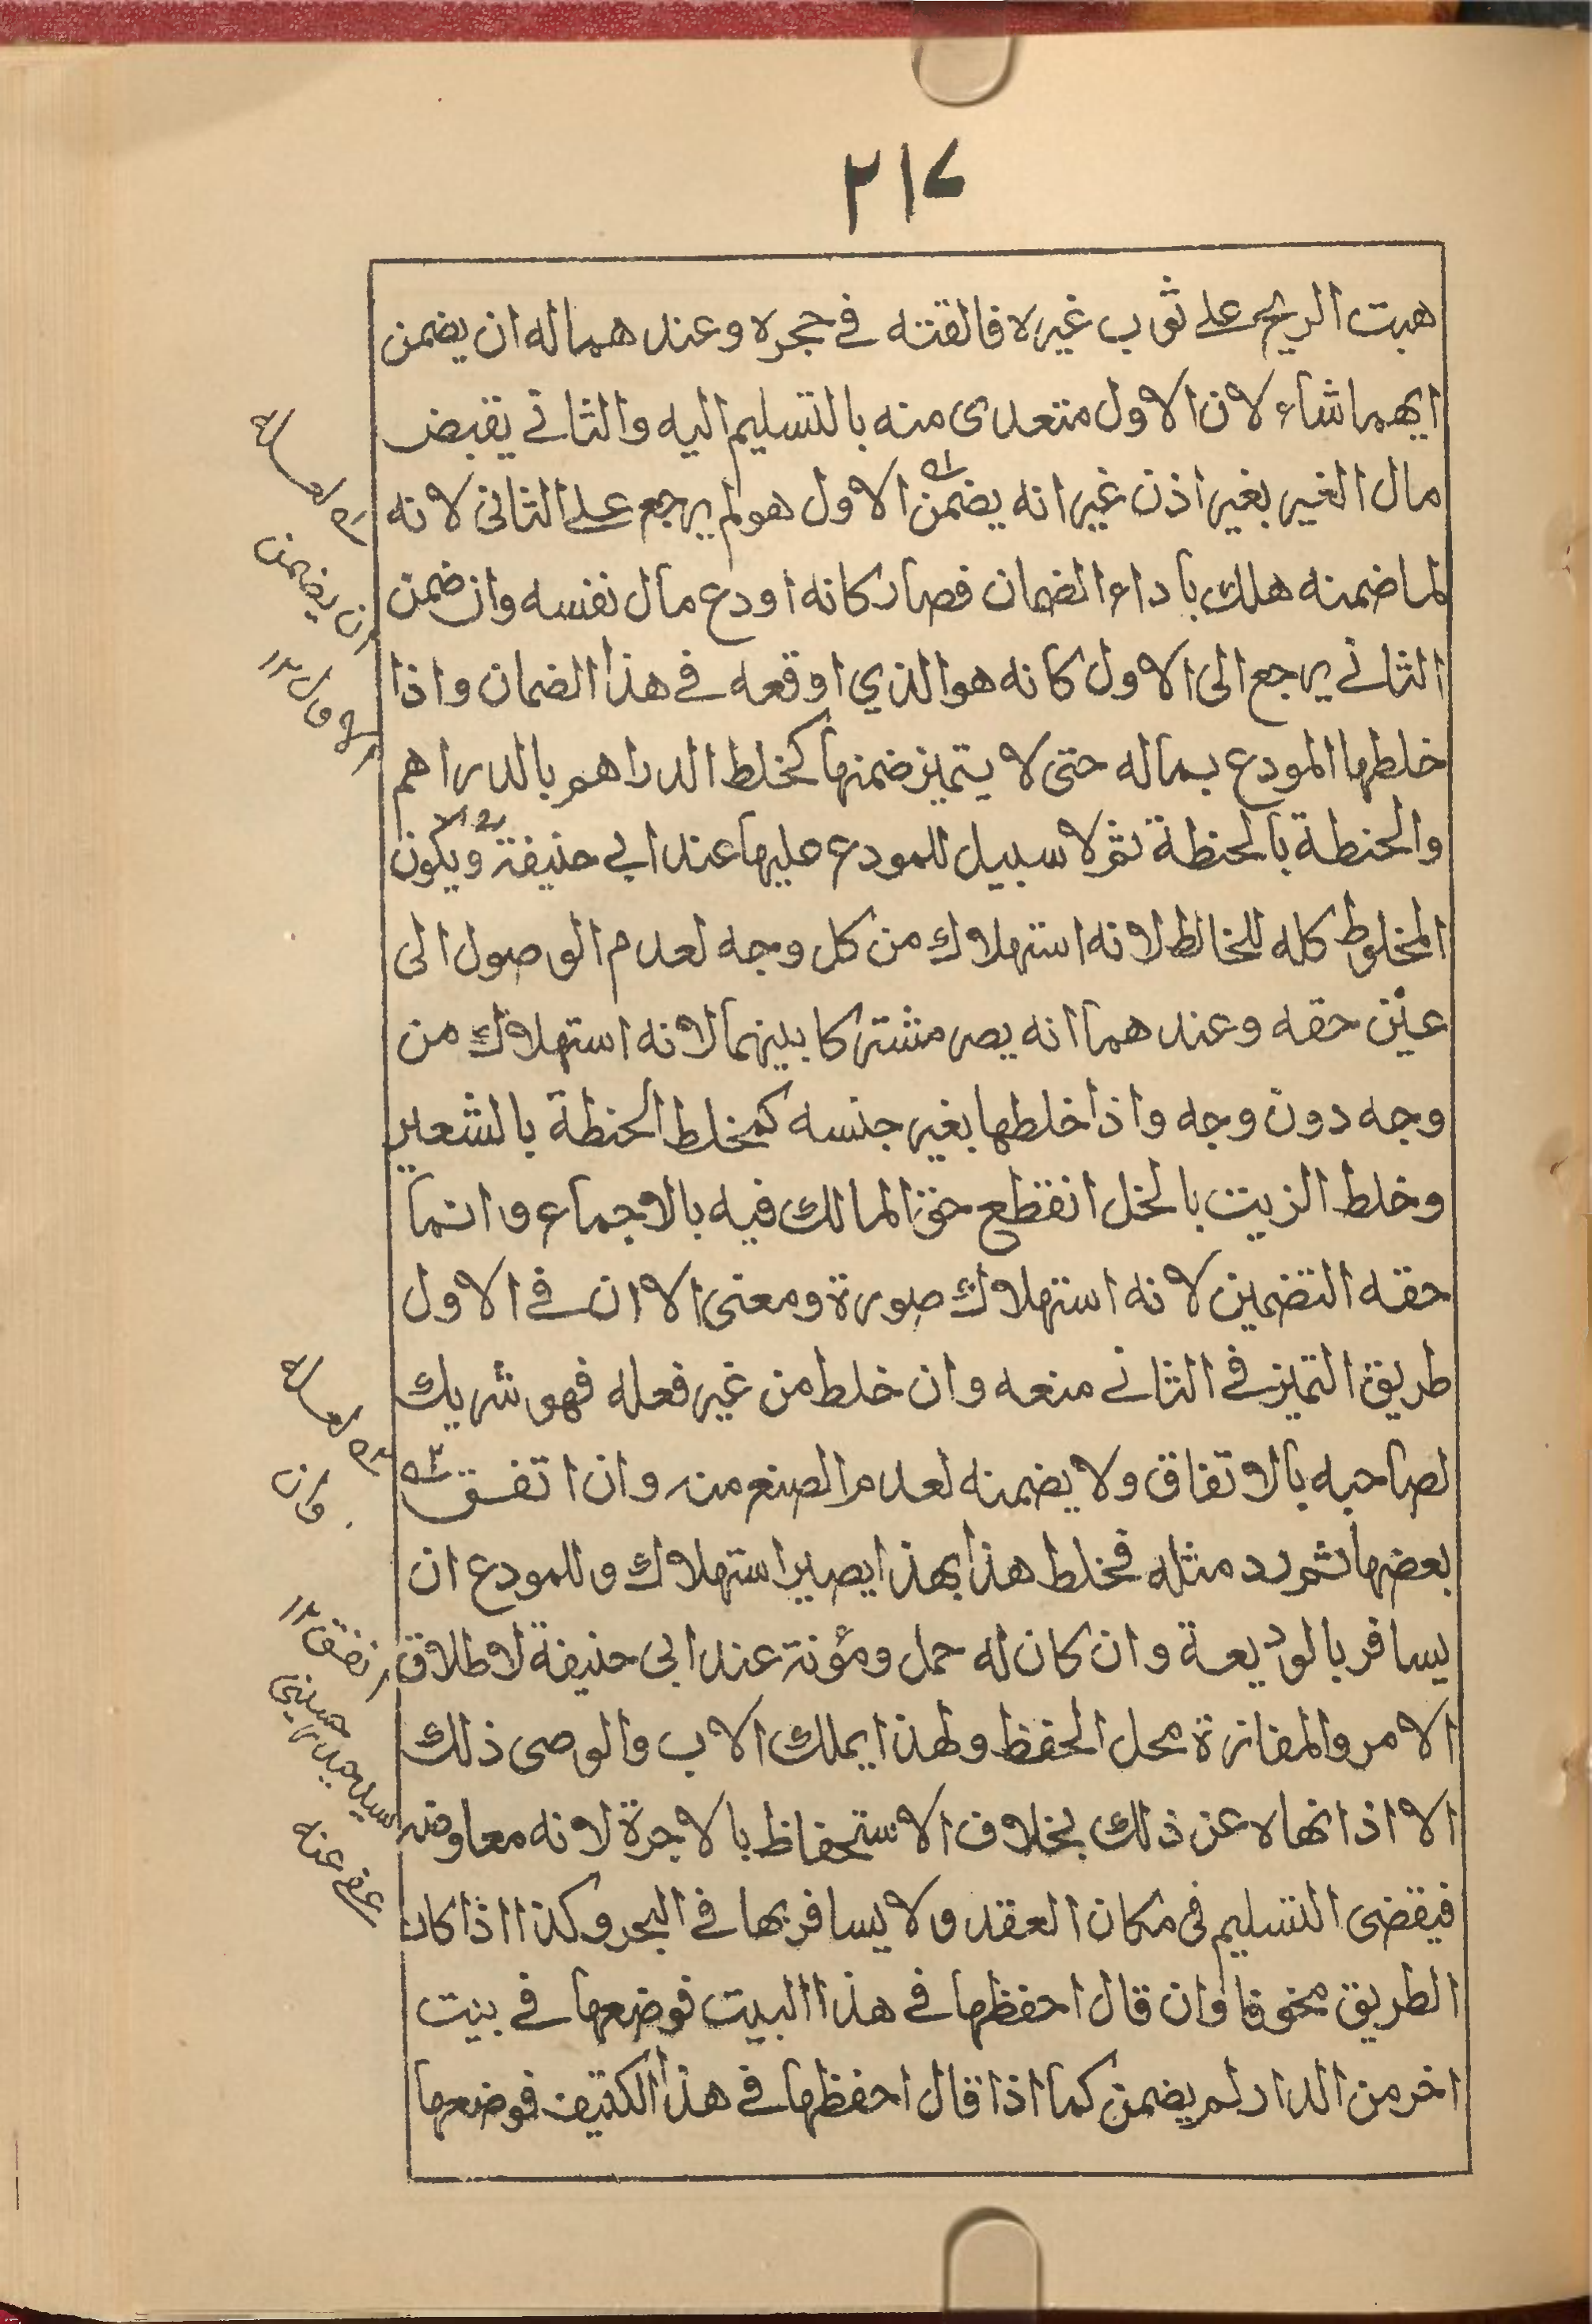 ٢١٧
هبت الريح على ثوب غيره فالقته في حجره وعندهما له ان يضمن
ايهما شاء لان الاول متعدى منه بالتسليم اليه والثاني يقبض
مال الغير بغير اذن غير انه يضمن الاول هو لم يرجع على الثانى لانه
لما ضمنه هلك باداء الضمان فصار كانه اودع مال نفسه وان ضمن
الثاني يرجع الى الاول كانه هو الذي اوقعه في هذا الضمان واذا
خلطها المودع بماله حتى لا يتميز ضمنها كخلط الدراهم بالدراهم
والحنطة بالحنطة ثم لا سبيل للمودع عليها عند ابي حنيفة ويكون
المخلوط كله للخالط لانه استهلاك من كل وجه لعدم الوصول الى
عين حقه وعندهما انه يصر مشتركا بينهما لانه استهلاك من
وجه دون وجه واذا خلطها بغير جنسه كمخلط الحنطة بالشعير
وخلط الزيت بالخل انقطع حق المالك فيه بالاجماع وانما
حقه التضمين لانه استهلاك صورة ومعنى الا ان في الاول
طريق التميز في الثاني منعه وان خلط من غير فعله فهو شريك
لصاحبه بالاتفاق ولا يضمنه لعدم الصنع منه وان اتفق
بعضها ثم رد مثله فخلط هذا بهذا يصير استهلاك وللمودع ان
يسافر بالوديعة وان كان له حمل ومؤنة عند ابى حنيفة لاطلاق
الامر والمفازة محل الحفظ ولهذا يملك الاب والوصى ذلك
الا اذا نهاه عن ذلك بخلاف الاستحفاظ بالاجرة لانه معاوضه
فيقضى التسليم فى مكان العقد ولا يسافر بها في البحر وكذا اذا كان
الطريق مخوفا وان قال احفظها في هذا البيت فوضعها في بيت
اخر من الدار لم يضمن كما اذا قال احفظها في هذا الكتيف فوضعها
ان يضمن
الاول ١٢
وان
انفق ١٢
سيد حيدر حسينى
عفى عنه